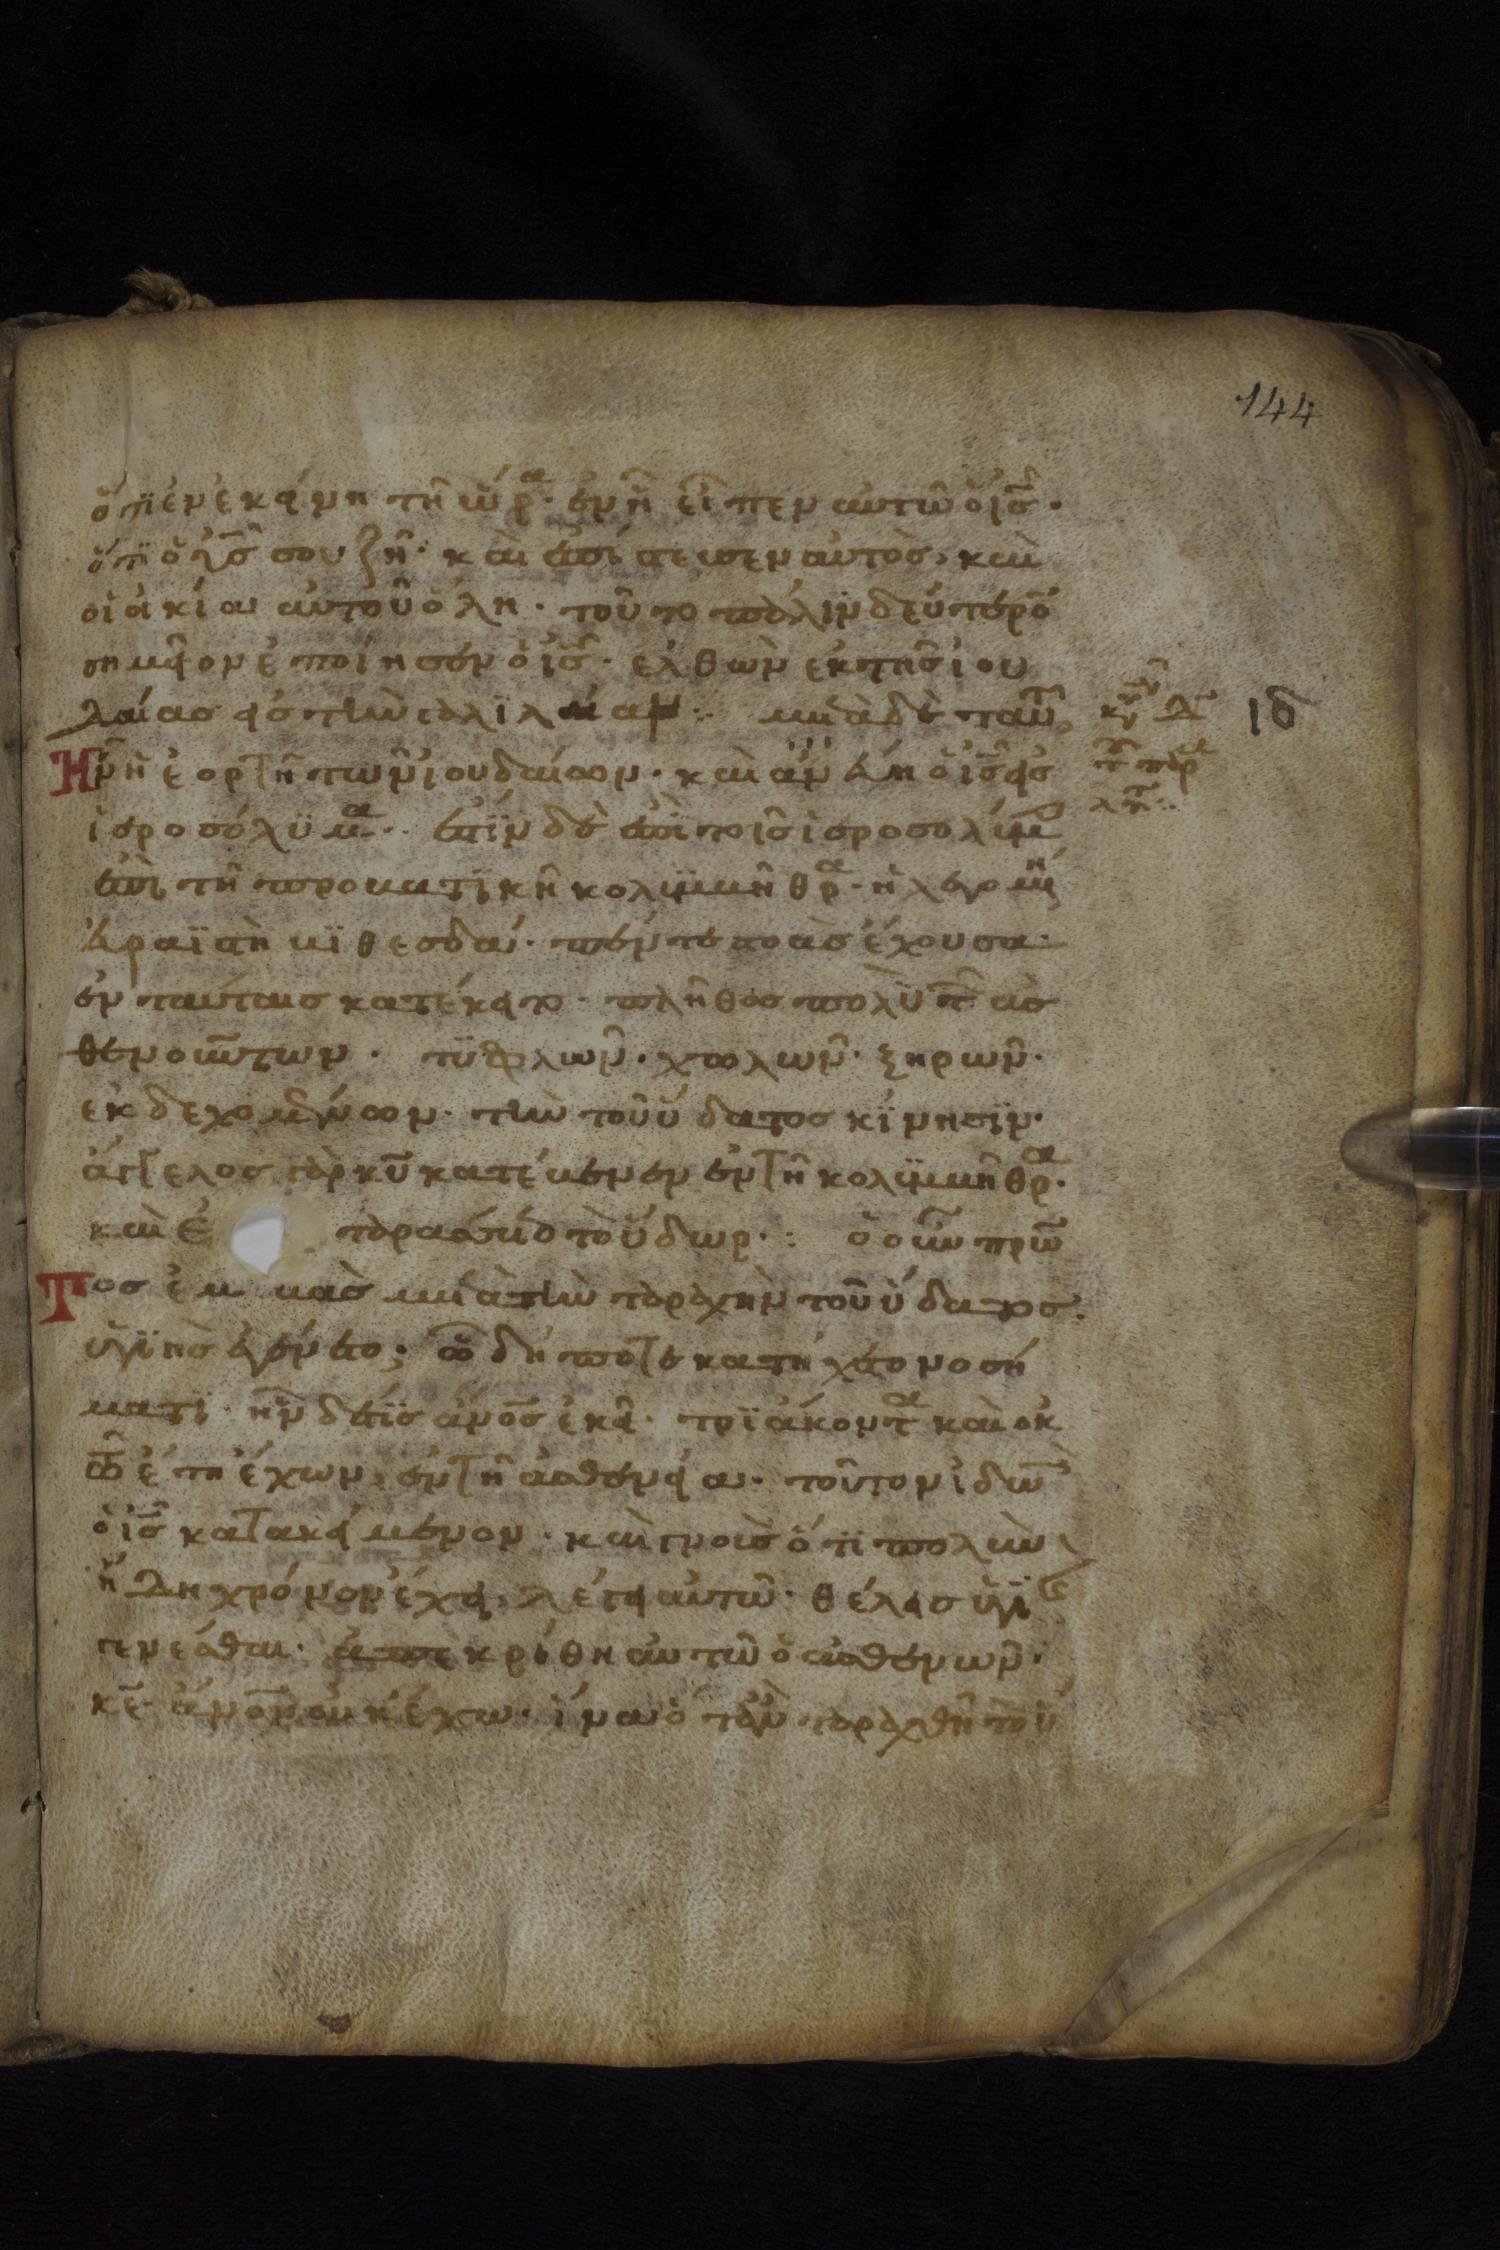 144
ὅτϊ ἐν ἐκείνη τῆ ὥρα· ἐν ἧ εἶπεν αὐτῶ ὁ ἰς̅·
ὅτϊ ὁ υἱς̅ σου ζῆ· καὶ ἐπίστευσεν αὐτὸς, καὶ
οἰἀκία αὐτοῦ ὅλη· τοῦτο πάλϊν δεύτερον
σημεῖον ἐποίησεν ὁ ἰς̅· ἐλθὼν ἐκ τῆς ἰου
δαίας εἰς τὴν γαλϊλαίαν·: μετὰ δὲ ταῦτ
Ἦν ἡ ἑορτὴ τῶν ἰουδαίων· καὶ ἀνέβη ὁ ἰς̅ εἰς
ἱεροσόλϋμα·· ἐστϊν δὲ ἐν τοῖς ἱεροσολύμ
ἐπὶ τῆ προβατϊκῆ κολϋμβήθρα· ἡ λεγομένη
ἑβραϊστὴ βϊθεσδά· πέντε στοὰς ἔχουσα·
ἐν ταύταις κατέκειτο· πλῆθος πολὺ τῶν ἀσ
θενούντων· τϋφλῶν· χωλῶν· ξηρῶν·
ἐκδεχομένων· τὴν τοῦ ὕδατος κίνησϊν·
ἄγγελος γὰρ κυ̅ κατέβενεν ἐν τῆ κολϋμβήθρα·
καὶ ἐ ταράσσετο τὸ ὕδωρ·: ὁ οὖν πρῶ
Τος ἐμ βὰς μετὰ τὴν ταραχὴν τοῦ ὕδατος·
ὑγϊὴς ἐγένετο; ὧ δήποτε κατήχετο νοσή
ματι· ἦν δέ τϊς ἄνο̅ς ἐκεῖ· τρϊάκοντα καὶ ὀκ
τὼ ἔτη ἔχων, ἐν τῆ ἀσθενεία· τοῦτον ἰδὼν
ὁ ἰς̅ κατακείμενον· καὶ γνοὺς ὅτϊ πολὺν
ἤδη χρόνον ἔχει, λέγει αὐτῶ· θέλεις ὑγϊὴς
γενέσθαι· ἀπεκρίθη αὐτῶ ὁ ἀσθενῶν·
κε̅· ἄνο̅ν οὐκ ἔχω· ἵνα ὅταν ταραχθῆ τὸ ὕ